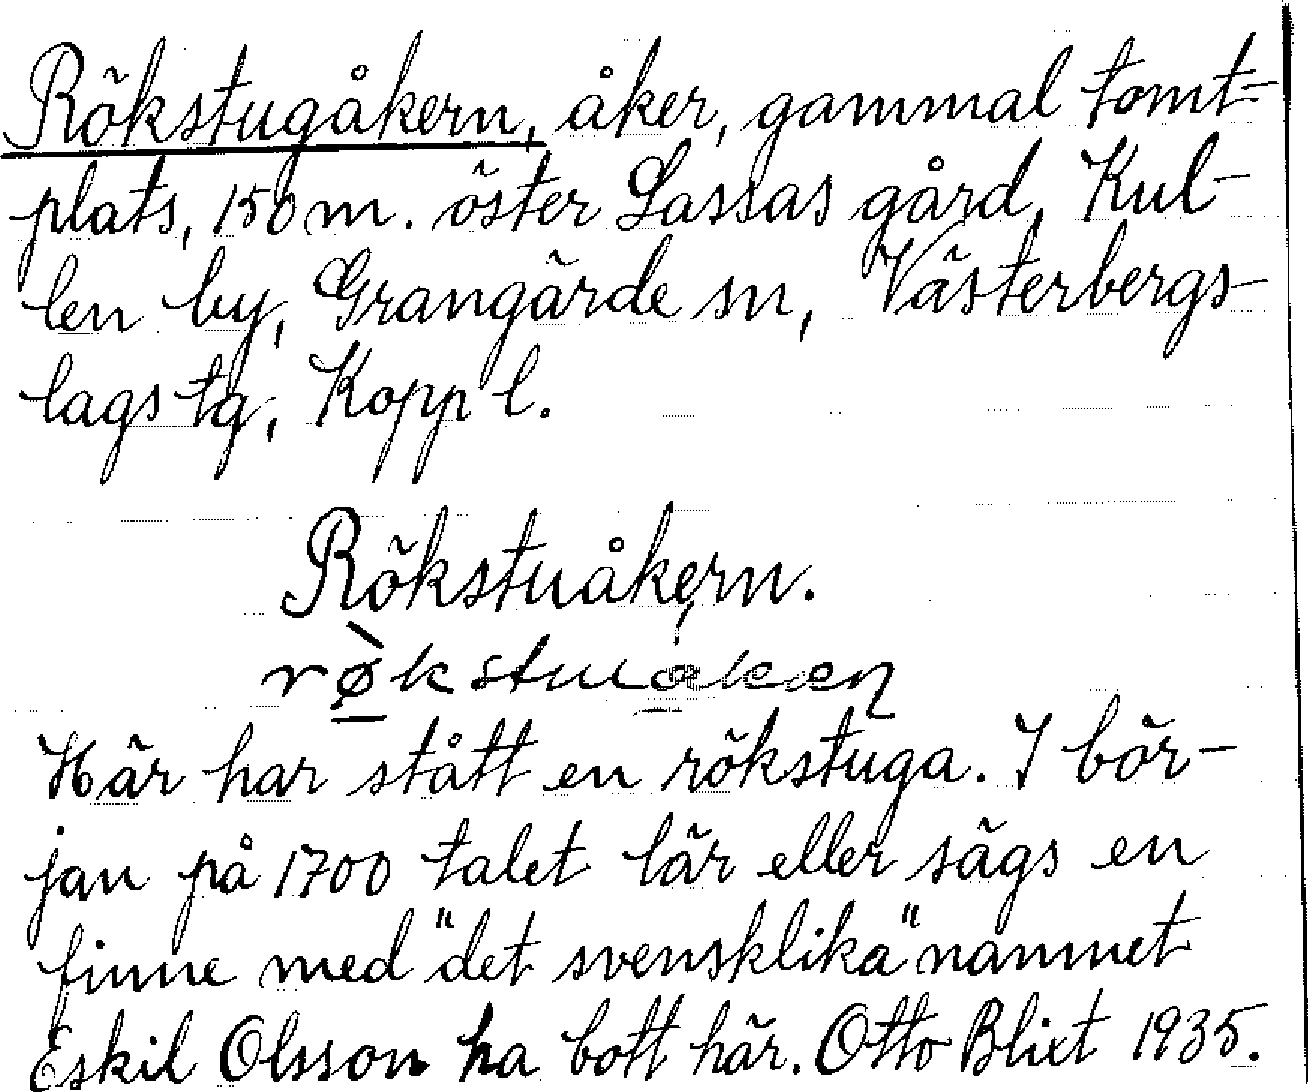 Rökstugåkern, åker, gammal tomt-
plats, 150 m. öster Lassas gård, Kul-
len by, Grangärde sn, Västerbergs-
lags tg, Kopp l.
Rökstuåkern.
Här har stått en rökstuga. I bör-
jan på 1700 talet lär eller sägs en
finne med "det svensklika" namnet
Eskil Olsson ha bott här. Otto Blixt 1935.